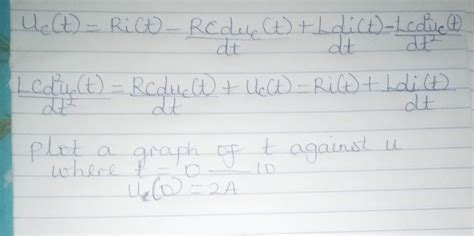 Uc(t) = Ri(t) - RCduc(t)/dt + Ldi(t)/dt - Lcd²uc(t)/dt²
LCd²uc(t)/dt² = RCduc(t)/dt + Uc(t) - Ri(t) + Ldi(t)/dt
plot a graph of t against u
where t = 0 — 10
Uc(0) = 2A